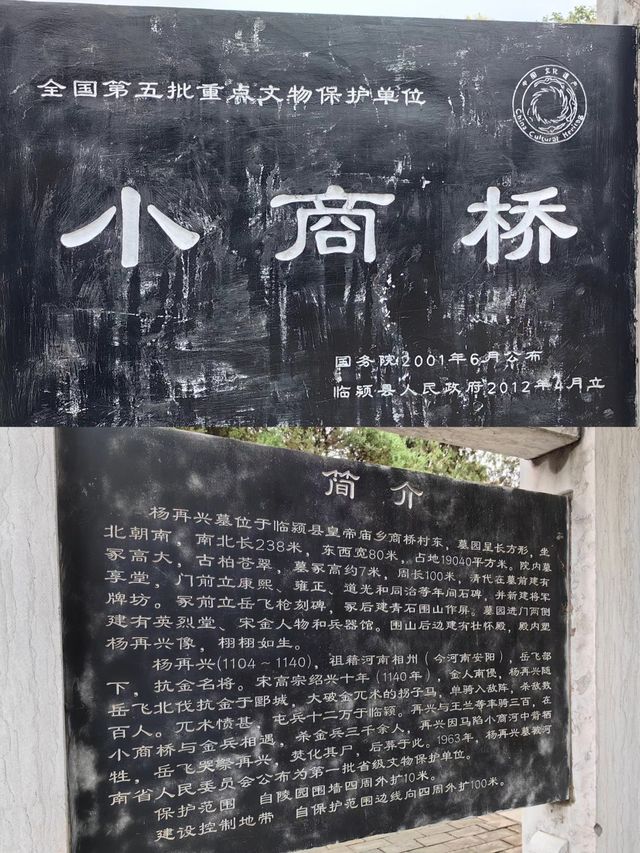 全国第五批重点文物保护单位
中国文化遗产
China Cultural Heritage
小商桥
国务院2001年6月公布
临颍县人民政府2012年4月立
简介
杨再兴墓位于临颍县皇帝庙乡商桥村东，墓园呈长方形，坐
北朝南，南北长238米，东西宽80米，占地19040平方米。院内墓
冢高大，古柏苍翠，墓冢高约7米，周长100米，清代在墓前建有
享堂，门前立康熙、雍正、道光和同治等年间石碑，并新建将军
牌坊。冢前立岳飞枪刻碑，冢后建青石围山作屏。墓园进门两侧
建有英烈堂、宋金人物和兵器馆。围山后边建有壮怀殿，殿内塑
杨再兴像，栩栩如生。
杨再兴(1104～1140)，祖籍河南相州（今河南安阳），岳飞部
下，抗金名将。宋高宗绍兴十年（1140年），金人南侵，杨再兴随
岳飞北伐抗金于郾城，大破金兀术的拐子马，单骑入敌阵，杀敌数
百人。兀术愤甚，屯兵十二万于临颍。再兴与王兰等率骑三百，在
小商桥与金兵相遇，杀金兵三千余人，再兴因马陷小商河中箭牺
牲，岳飞哭祭再兴，焚化其尸，后葬于此。1963年，杨再兴墓被河
南省人民委员会公布为第一批省级文物保护单位。
保护范围 自陵园围墙四周外扩10米。
建设控制地带 自保护范围边线向四周外扩100米。